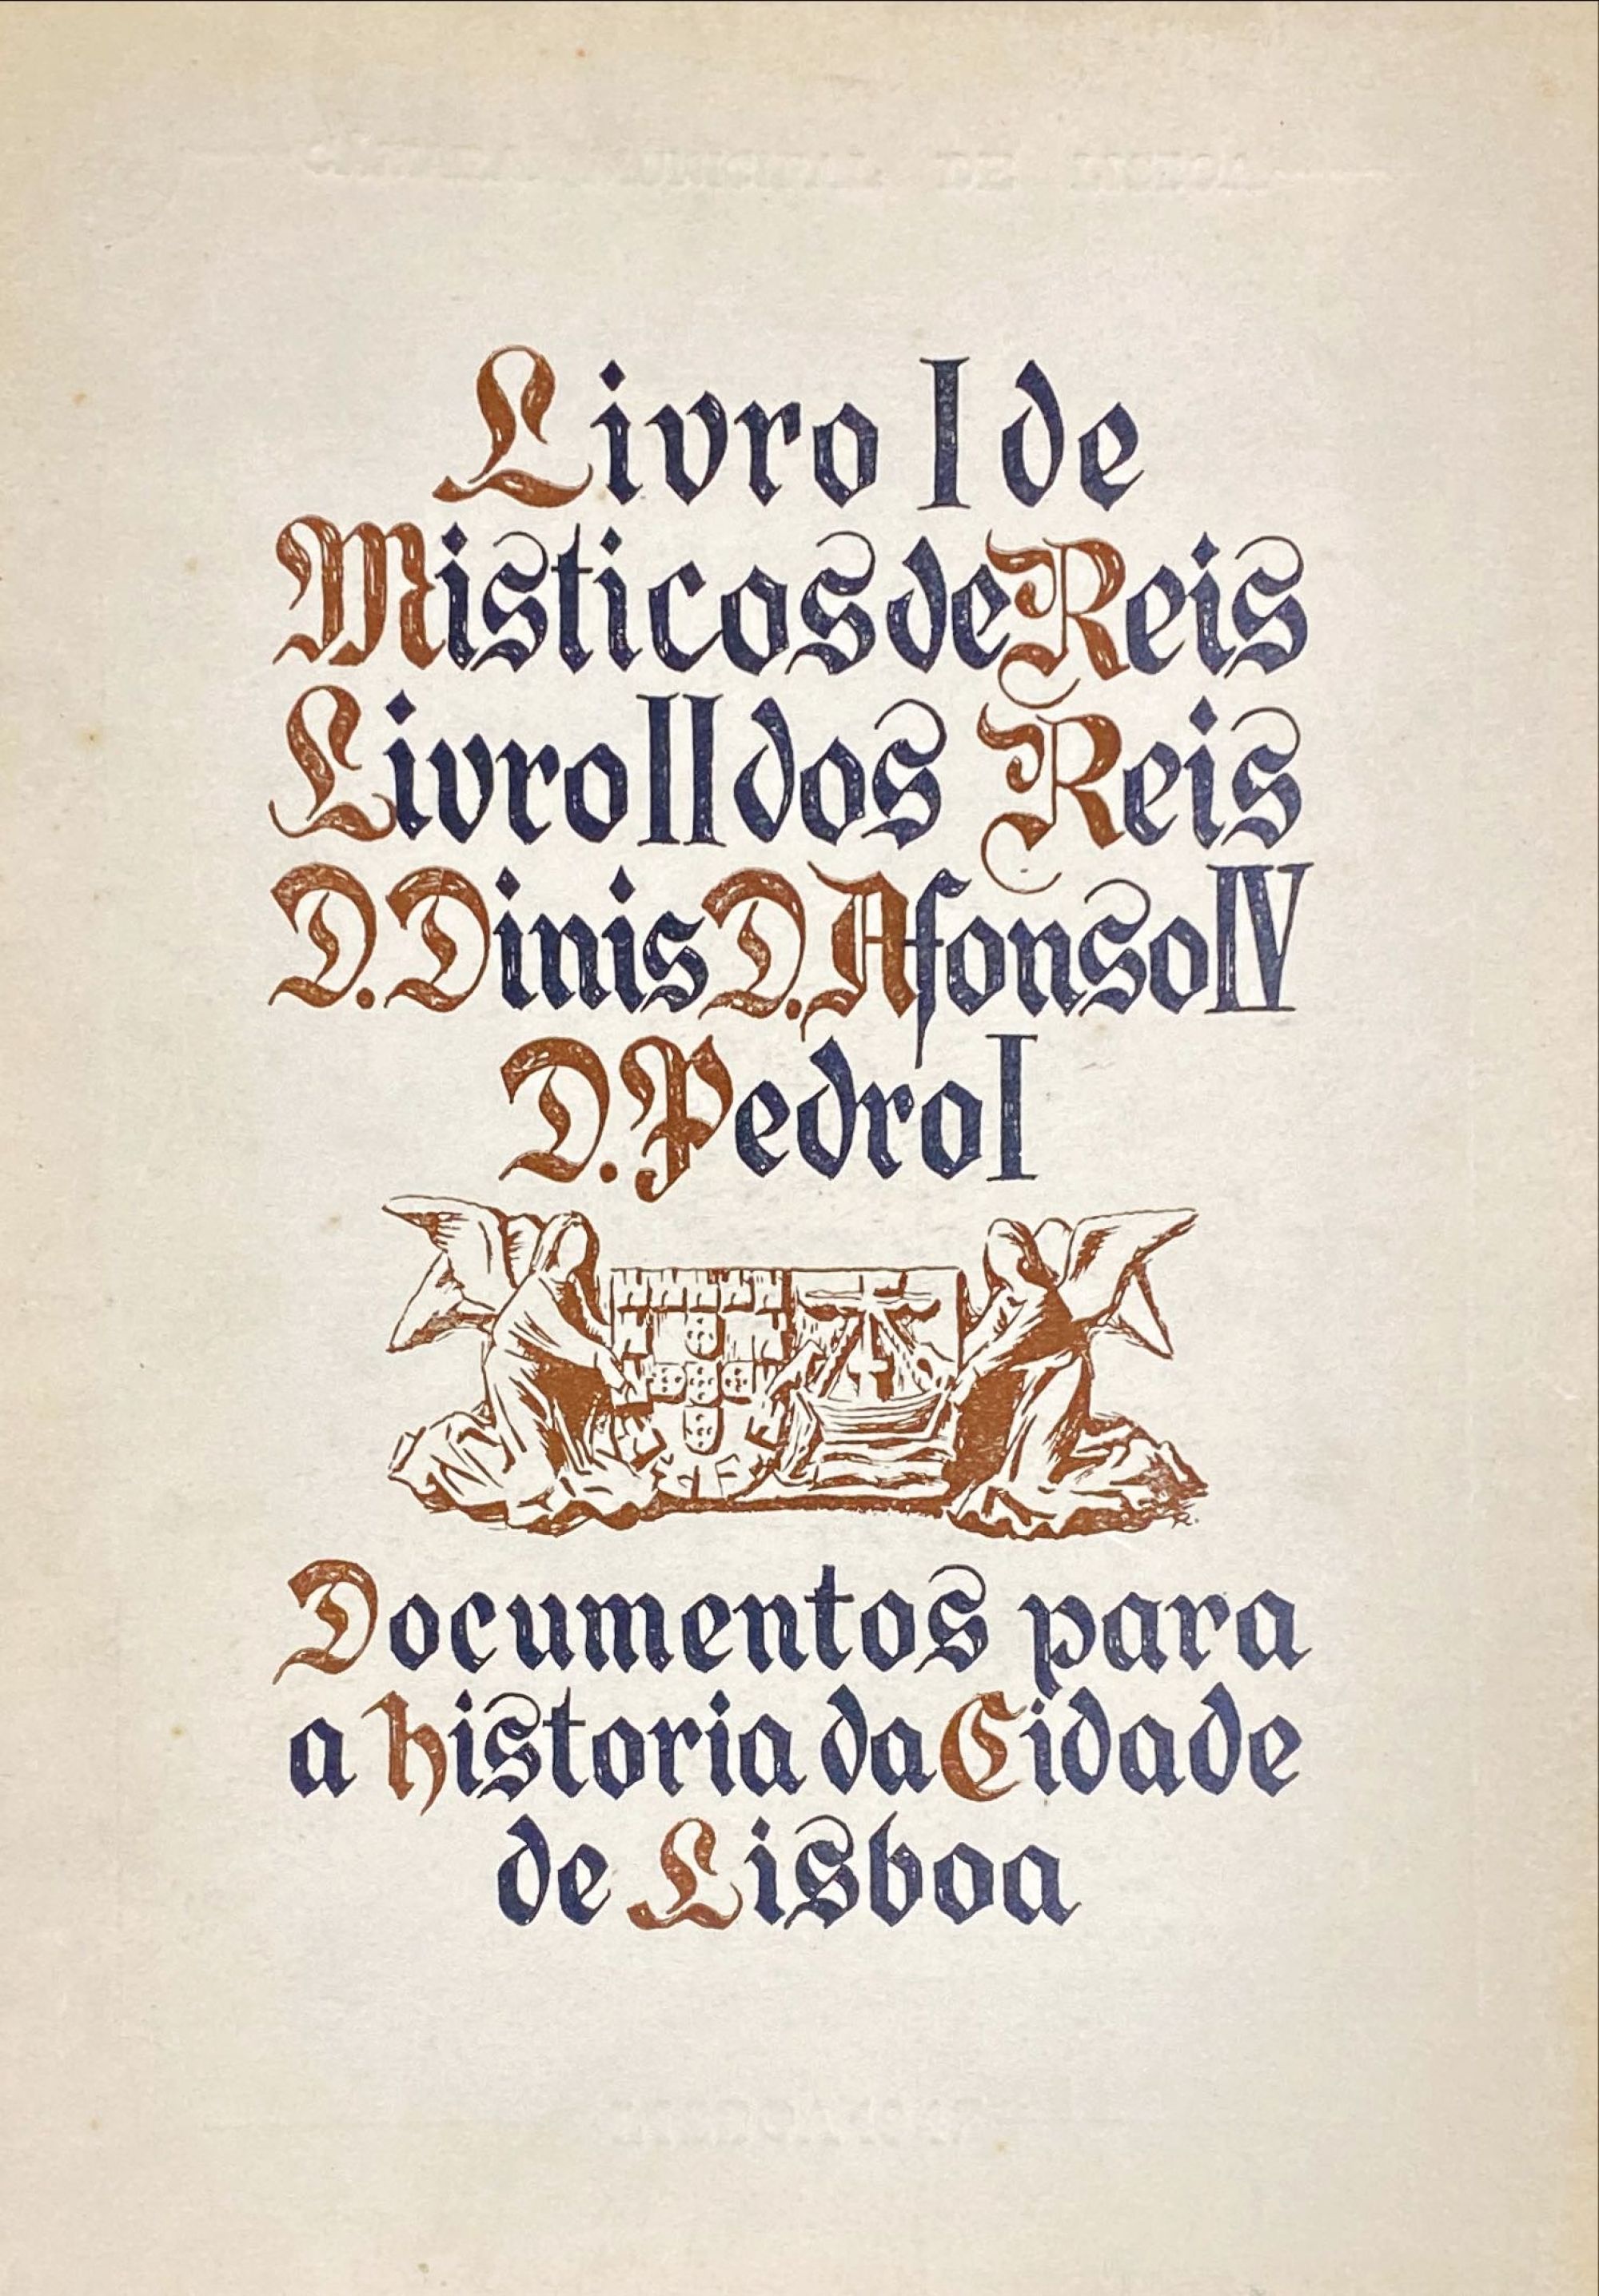 Livro I de
Misticos de Reis
Livro II dos Reis
D. Dinis D. Afonso IV
D. Pedro I
Documentos para
a historia da Cidade
de Lisboa